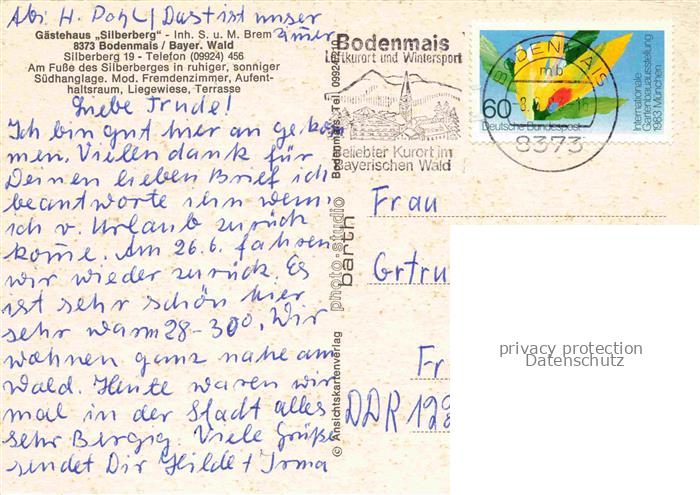 Abs. H. Pohl / Das ist unser
Zimmer
Gästehaus „Silberberg" - Inh. S. u. M. Brem
8373 Bodenmais / Bayer. Wald
Silberberg 19 - Telefon (09924) 456
Am Fuße des Silberberges in ruhiger, sonniger
Südhanglage. Mod. Fremdenzimmer, Aufent-
haltsraum, Liegewiese, Terrasse
Liebe Trude!
Ich bin gut hier an gekom
men. Vielen dank für
Deinen lieben Brief ich
beantworte ihn wenn
ich v. Urlaub zurück
kome. Am 26.6. fahren
wir wieder zurück. Es
ist sehr schön hier
sehr warm 28-30°. Wir
wohnen ganz nahe am
Wald. Heute waren wir
mal in der Stadt alles
sehr Bergig. Viele Grüße
sendet Dir Hilde + Irma
Bodenmais
Luftkurort und Wintersport
Beliebter Kurort im
Bayerischen Wald
BODENMAIS
mb
8373
60
Deutsche Bundespost
Internationale
Gartenbauausstellung
1983 München
Bodenmais, Tel.
photo-studio
barth
© Ansichtskartenverlag
Frau
Gertru
Fr
DDR 128
privacy protection
Datenschutz